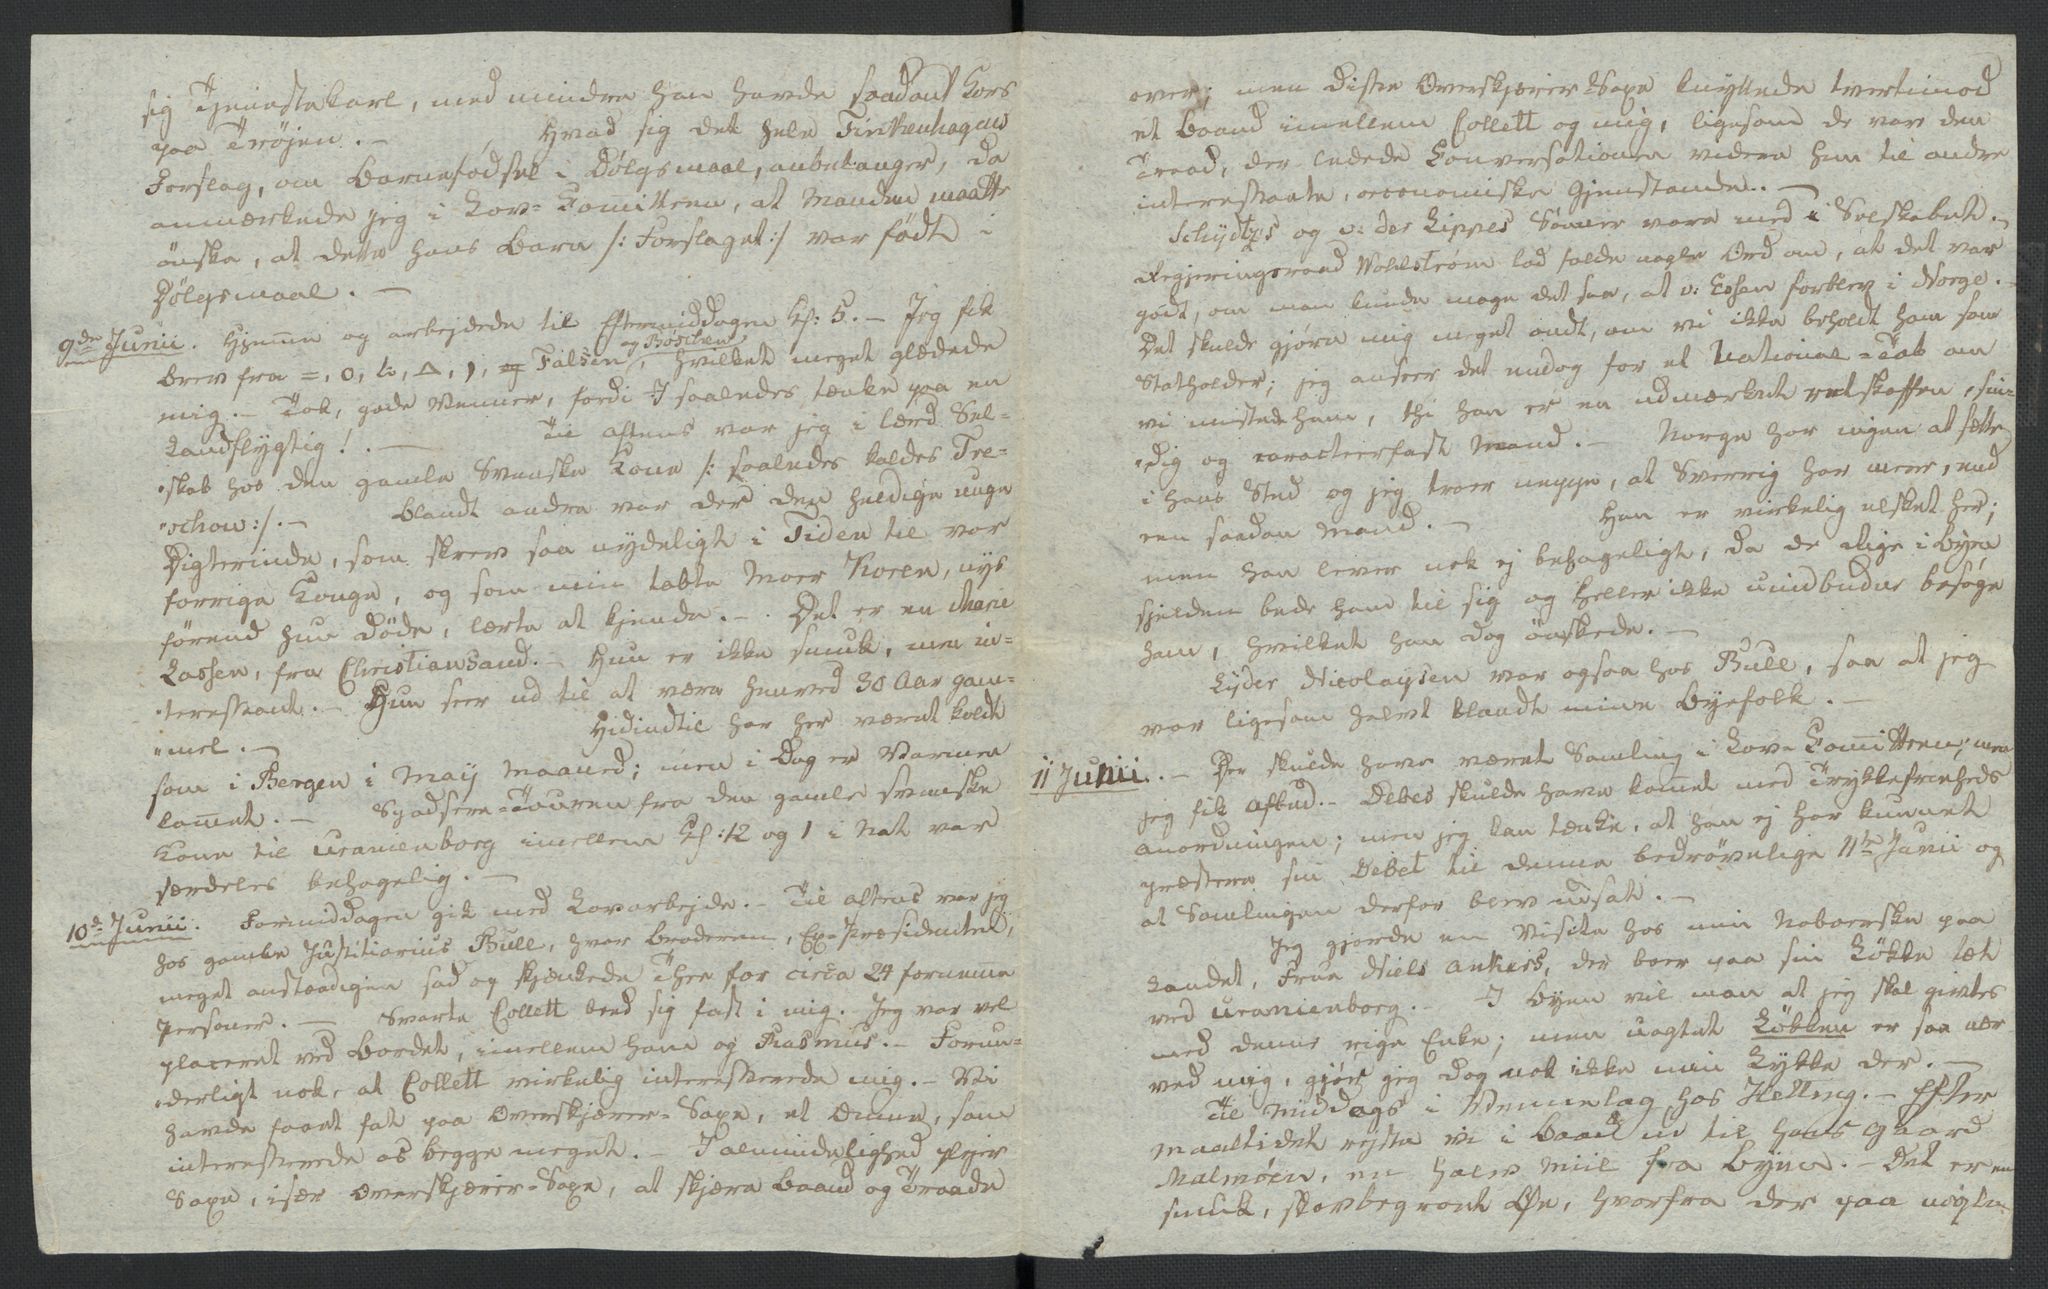 sig Tjenestekarl, med mindre han havde saadant Kors
paa Trøjen. — Hvad sig det hele Finkenhagens
Forslag, om Barnefødsel i Dølgsmaal, anbelanger, da
anmærkede jeg i Lov-Comitteen, at Manden maatte
önske, at dette hans Barn /: Forslaget :/ var født i
Dølgsmaal. —
9de Junii. Hjemme og arbejdede til Eftermiddagen Kl: 5. — Jeg fik
og Böschen
Brev fra =, o, Δ, Falsen, hvilket meget glædede
mig. — Tak, gode Venner, fordi I saaledes tænke paa en
Landflygtig! — Til Aftens var jeg i lærd Sel=
skab hos den gamle Svenske Kone /: saaledes kaldes Tre=
schow :/. — Blandt andre var der den heldige unge
Digterinde, som skrev saa nydeligt i Tiden til vor
forrige Konge, og som min tabte Moer Koren, nys
førend hun döde, lærte at kjende. — Det er en Marie
Lassen, fra Christiansand. — Hun er ikke smuk, men in=
teressant. — Hun seer ud til at være henved 30 Aar gam=
mel. — Hidindtil har her været koldt
som i Bergen i May Maaned; men i Dag er Varmen
kommet. — Spadsere-Touren fra den gamle svenske
Kone til Uranienborg imellem Kl: 12 og 1 i Nat var
særdeles behagelig. —
10de Junii. Formiddagen gik med Lovarbejde. — Til Aftens var jeg
hos gamle Justitiarius Bull, hvor Broderen, Ex-Præsidenten,
meget anstændigen sad og skjenkede Thee for circa 24 fornemme
Personer. — Svarte Collett beed sig fast i mig. Jeg var vel
placeret ved Bordet, imellem ham og Rasmus. — Forun=
derligt nok, at Collett virkelig interesserede mig. — Vi
havde faaet fat paa Overskjærer-Saxe, et Emne, som
interesserede os begge meget. — I Almindelighed plejer
Saxe, især Overskjærer-Saxe, at skjære Baand og Traade
over; men disse Overskjærer-Saxe knyttede tvertimod
et Baand imellem Collett og mig, ligesom de var den
Traad, der ledede Conversationen videre hen til andre
interessante, oeconomiske Gjenstande. —
Schydtzs og v: der Lippes Sønner vare med i Selskabet. —
Regjeringsraad Wohlstrøm lod falde nogle Ord om, at det var
godt, om man kunde mage det saa, at v: Essen forblev i Norge. —
Det skulde gjöre mig meget ondt, om vi ikke beholdt ham som
Statholder; jeg anseer det endog for et National-Tab om
vi mistede ham, thi han er en udmærket retskaffen, sin=
dig og caracteerfast Mand. — Norge har ingen at sætte
i hans Sted og jeg troer neppe, at Sverrig har meer, end
een saadan Mand. — Han er virkelig elsket her;
men han lever nok ej behageligt, da de Rige i Byen
sjelden bede ham til sig og heller ikke uindbudne besøge
ham, hvilket han dog önskede. —
Lyder Nicolaysen var ogsaa hos Bull, saa at jeg
var ligesom halvt blandt mine Byefolk. —
11 Junii. — Der skulde have været Samling i Lov-Comitteen; men
jeg fik Afbud. — Debes skulde have kommet med Trykkefriheds
anordningen; men jeg kan tænke, at han ej har kunnet
præstere sin Debet til denne bedrövelige 11te Junii og
at Samlingen derfor blev udsat. —
Jeg gjorde en Visite hos min Naboerske paa
Landet, Frue Niels Ankers, der boer paa sin Løkke tæt
ved Uranienborg. — I Byen vil man at jeg skal giftes
med denne rige Enke; men uagtet Løkken er saa nær
ved mig, gjör jeg dog nok ikke min Lykke der. —
Til Middags i Vennelag hos Hetting. — Efter
Maaltidet rejste vi i Baad ud til hans Gaard
Malmøen, en halv Miil fra Byen. — Det er en
smuk, skovbegroet Øe, hvorfra der paa nogle